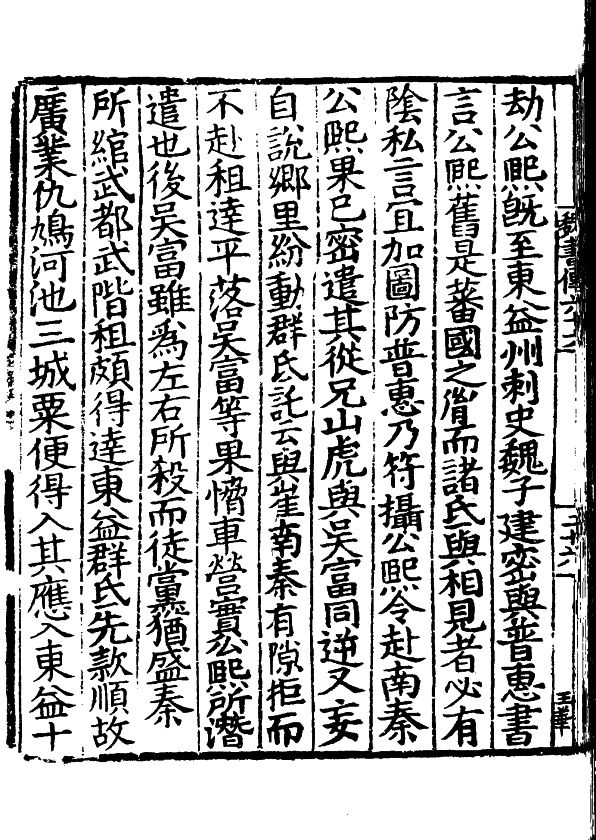 劫公熙既至東益州刺史魏子建密與普惠書
言公熙舊是蕃國之胄而諸氐與相見者必有
陰私言宜加圖防普惠乃符攝公熙令赴南秦
公熙果已密遣其從兄山虎與吳富同逆又妄
自說鄉里紛動群氐託云與崔南秦有隙拒而
不赴租達平落吳富等果脅車營實公熙所潛
遣也後吳富雖爲左右所殺而徒黨猶盛秦
所綰武都武階租頗得達東益群氐先款順故
廣業仇鳩河池三城粟便得入其應入東益十
魏書傳六十六
二十六
王華